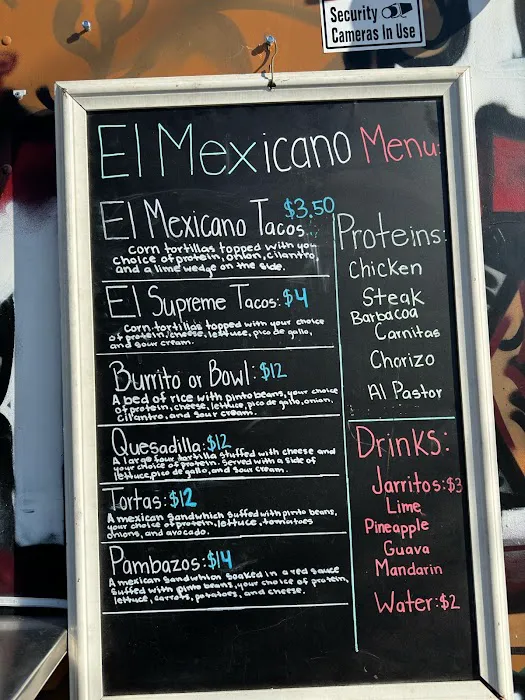 Security
Cameras In Use
El Mexicano Menu
El Mexicano Tacos: $3.50
corn tortillas topped with you
choice of protein, onion, cilantro,
and a lime wedge on the side.
El Supreme Tacos: $4
corn tortillas topped with your choice
of protein, cheese, lettuce, pico de gallo,
and sour cream.
Burrito or Bowl: $12
A bed of rice with pinto beans, your choice
of protein, cheese, lettuce, pico de gallo, onion,
cilantro, and sour cream.
Quesadilla: $12
A large flour tortilla stuffed with cheese and
your choice of protein. Served with a side of
lettuce, pico de gallo, and sour cream.
Tortas: $12
A mexican sandwhich suffed with pinto beans,
your choice of protein, lettuce, tomatoes
onions, and avocado.
Pambazos: $14
A mexican sandwhich soaked in a red sauce
suffed with pinto beans, your choice of protein,
lettuce, carrots, potatoes, and cheese.
Proteins:
Chicken
Steak
Barbacoa
Carnitas
Chorizo
Al Pastor
Drinks:
Jarritos: $3
Lime
Pineapple
Guava
Mandarin
Water: $2